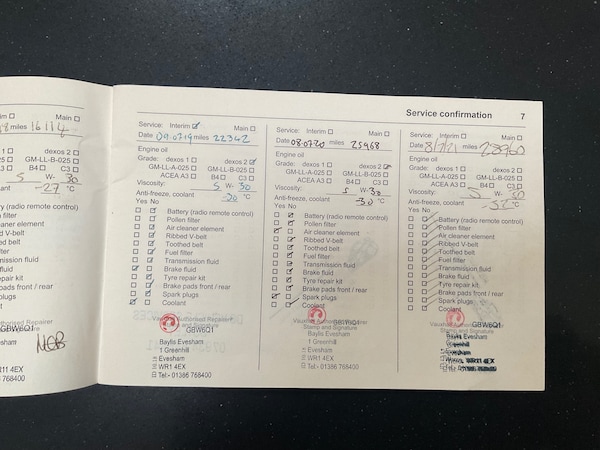 Service confirmation 7
im Main
miles 16114
1 dexos 2
025 GM-LL-B-025
A3 B4 C3
5 W- 30
ant -27 °C
(radio remote control)
filter
cleaner element
V-belt
belt
filter
ransmission fluid
fluid
repair kit
pads front / rear
plugs
GBW6Q1
sham
WR11 4EX
768400
Service: Interim Main
Date 09.07.19 miles 22342
Engine oil
Grade: dexos 1 dexos 2
GM-LL-A-025 GM-LL-B-025
ACEA A3 B4 C3
Viscosity: 5 W- 30
Anti-freeze, coolant -30 °C
Yes No
Battery (radio remote control)
Pollen filter
Air cleaner element
Ribbed V-belt
Toothed belt
Fuel filter
Transmission fluid
Brake fluid
Tyre repair kit
Brake pads front / rear
Spark plugs
Coolant
Vauxhall Authorised Repairer
Stamp and Signature
GBW6Q1
Baylis Evesham
1 Greenhill
Evesham
WR11 4EX
Tel:- 01386 768400
Service: Interim Main
Date 08.07.20 miles 25968
Engine oil
Grade: dexos 1 dexos 2
GM-LL-A-025 GM-LL-B-025
ACEA A3 B4 C3
Viscosity: 5 W- 30
Anti-freeze, coolant -30 °C
Yes No
Battery (radio remote control)
Pollen filter
Air cleaner element
Ribbed V-belt
Toothed belt
Fuel filter
Transmission fluid
Brake fluid
Tyre repair kit
Brake pads front / rear
Spark plugs
Coolant
Vauxhall Authorised Repairer
Stamp and Signature
GBW6Q1
Baylis Evesham
1 Greenhill
Evesham
WR11 4EX
Tel:- 01386 768400
Service: Interim Main
Date 8/7/21 miles 28960
Engine oil
Grade: dexos 1 dexos 2
GM-LL-A-025 GM-LL-B-025
ACEA A3 B4 C3
Viscosity: 5 W- 30
Anti-freeze, coolant °C
Yes No
Battery (radio remote control)
Pollen filter
Air cleaner element
Ribbed V-belt
Toothed belt
Fuel filter
Transmission fluid
Brake fluid
Tyre repair kit
Brake pads front / rear
Spark plugs
Coolant
Vauxhall Authorised Repairer
Stamp and Signature
GBW6Q1
Baylis Evesham
Greenhill
Evesham
WR11 4EX